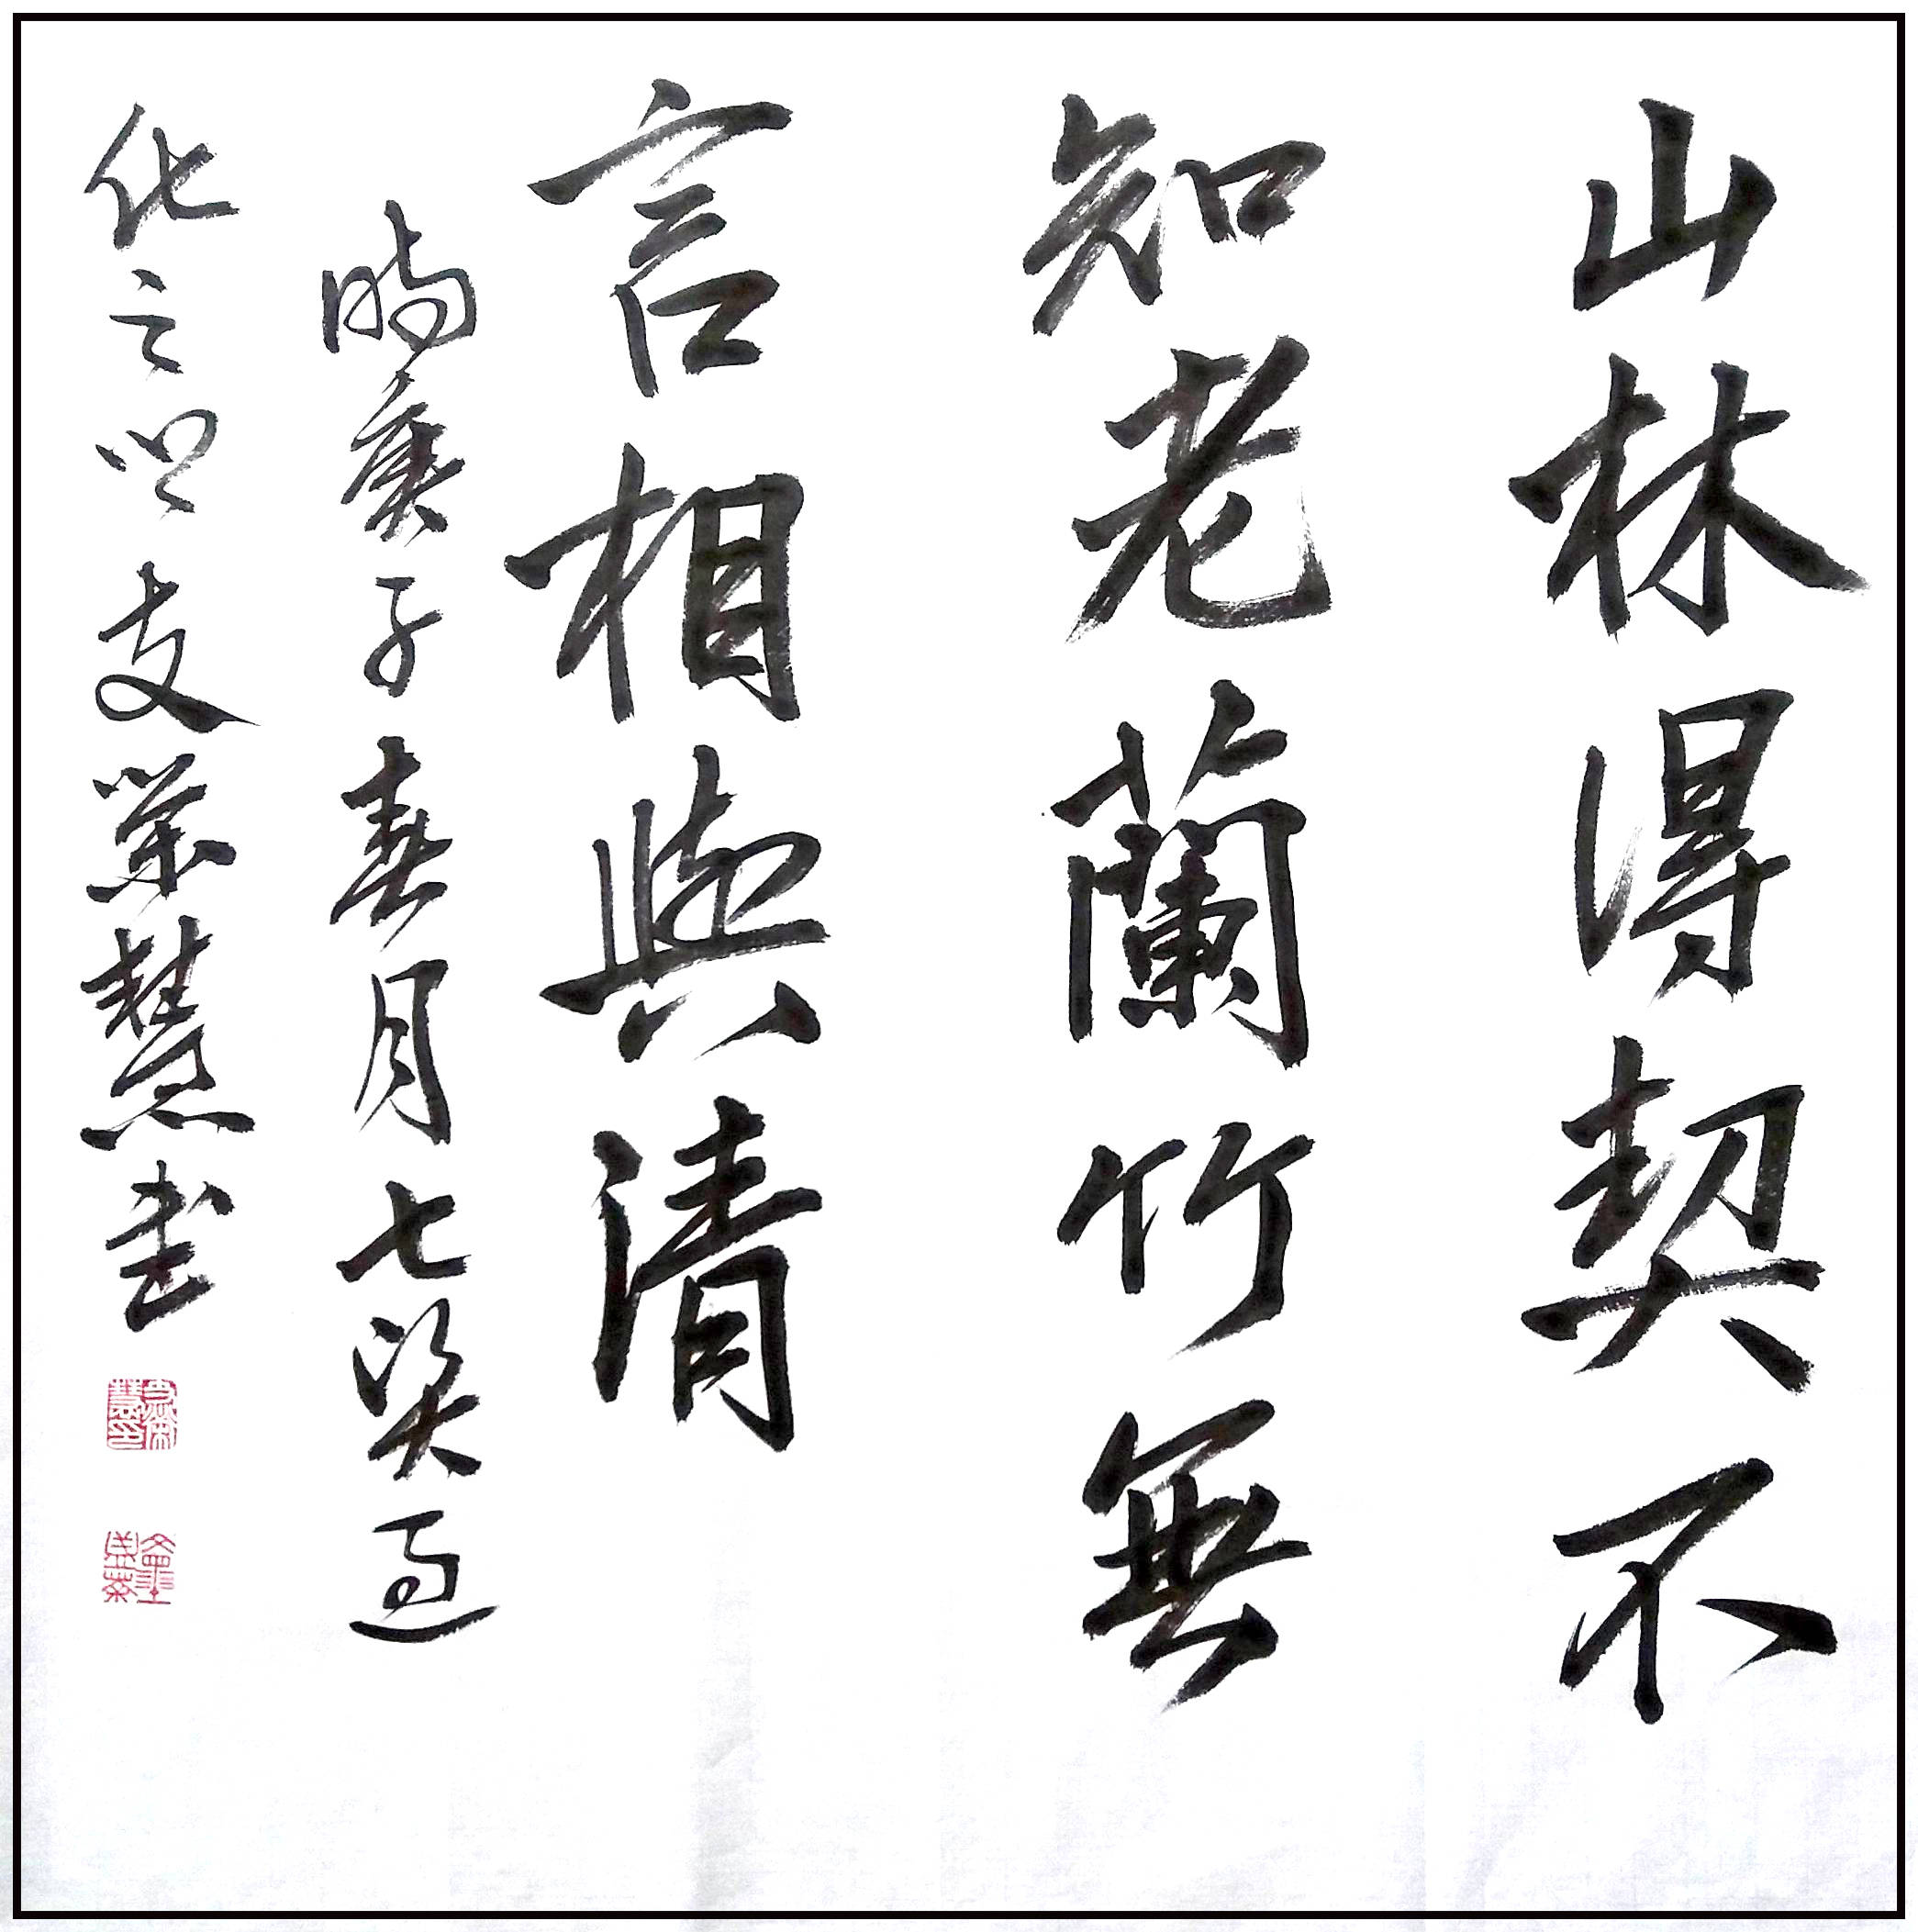 山林得契不
知老蘭竹無
言相與清
時庚子春月七過
化之慧書